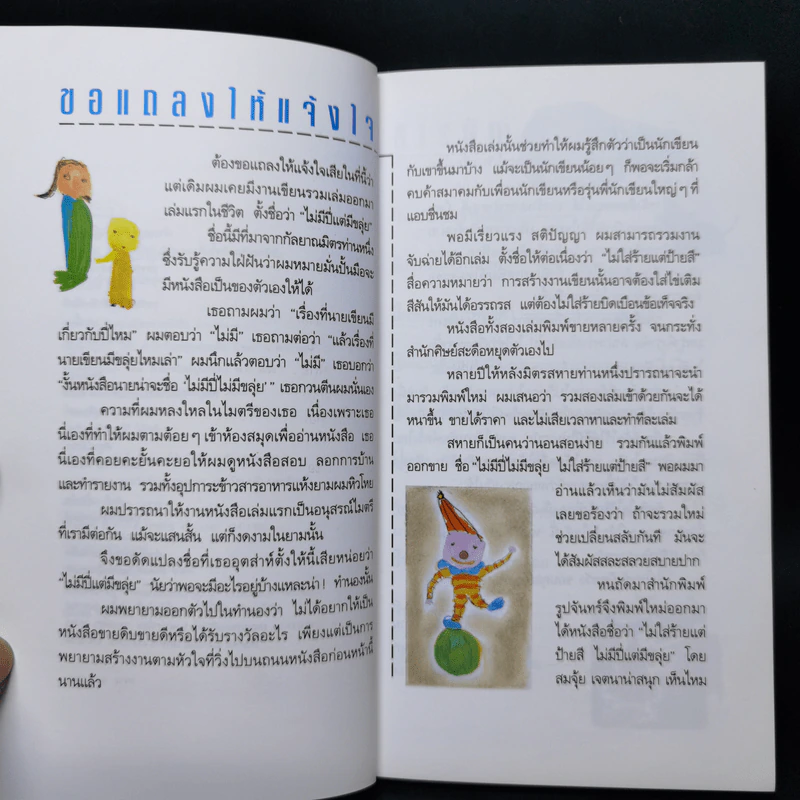 ขอแถลงให้แจ้งใจ
ต้องขอแถลงให้แจ้งใจเสียในที่นี้ว่า
แต่เดิมผมเคยมีงานเขียนรวมเล่มออกมา
เล่มแรกในชีวิต ตั้งชื่อว่า “ไม่มีปี่แต่มีขลุ่ย”
ชื่อนี้มีที่มาจากกัลยาณมิตรท่านหนึ่ง
ซึ่งรับรู้ความใฝ่ฝันว่าผมหมายมั่นปั้นมือจะ
มีหนังสือเป็นของตัวเองให้ได้
เธอถามผมว่า “เรื่องที่นายเขียนมี
เกี่ยวกับปี่ไหม” ผมตอบว่า “ไม่มี” เธอถามต่อว่า “แล้วเรื่องที่
นายเขียนมีขลุ่ยไหมเล่า” ผมนึกแล้วตอบว่า “ไม่มี” เธอบอกว่า
“งั้นหนังสือนายน่าจะชื่อ ‘ไม่มีปี่ไม่มีขลุ่ย’ ” เธอกวนตีนผมนั่นเอง
ความที่ผมหลงใหลในไมตรีของเธอ เนื่องเพราะเธอ
นี่เองที่ทำให้ผมตามต้อยๆ เข้าห้องสมุดเพื่ออ่านหนังสือ เธอ
นี่เองที่คอยคะยั้นคะยอให้ผมดูหนังสือสอบ ลอกการบ้าน
และทำรายงาน รวมทั้งอุปการะข้าวสารอาหารแห้งยามผมหิวโหย
ผมปรารถนาให้งานหนังสือเล่มแรกเป็นอนุสรณ์ไมตรี
ที่เรามีต่อกัน แม้จะแสนสั้น แต่ก็งดงามในยามนั้น
จึงขอดัดแปลงชื่อที่เธออุตส่าห์ตั้งให้นี้เสียหน่อยว่า
“ไม่มีปี่แต่มีขลุ่ย” นัยว่าพอจะมีอะไรอยู่บ้างแหละน่า! ทำนองนั้น
ผมพยายามออกตัวไปในทำนองว่า ไม่ได้อยากให้เป็น
หนังสือขายดิบขายดีหรือได้รับรางวัลอะไร เพียงแต่เป็นการ
พยายามสร้างงานตามหัวใจที่วิ่งไปบนถนนหนังสือก่อนหน้านี้
นานแล้ว
หนังสือเล่มนั้นช่วยทำให้ผมรู้สึกตัวว่าเป็นนักเขียน
กับเขาขึ้นมาบ้าง แม้จะเป็นนักเขียนน้อยๆ ก็พอจะเริ่มกล้า
คบค้าสมาคมกับเพื่อนนักเขียนหรือรุ่นพี่นักเขียนใหญ่ๆ ที่
แอบชื่นชม
พอมีเรี่ยวแรง สติปัญญา ผมสามารถรวมงาน
จับฉ่ายได้อีกเล่ม ตั้งชื่อให้ต่อเนื่องว่า “ไม่ใส่ร้ายแต่ป้ายสี”
สื่อความหมายว่า การสร้างงานเขียนนั้นอาจต้องใส่ไข่เติม
สีสันให้มันได้อรรถรส แต่ต้องไม่ใส่ร้ายบิดเบือนข้อเท็จจริง
หนังสือทั้งสองเล่มพิมพ์ขายหลายครั้ง จนกระทั่ง
สำนักศิษย์สะดือหยุดตัวเองไป
หลายปีให้หลังมิตรสหายท่านหนึ่งปรารถนาจะนำ
มารวมพิมพ์ใหม่ ผมเสนอว่า รวมสองเล่มเข้าด้วยกันจะได้
หนาขึ้น ขายได้ราคา และไม่เสียเวลาหาและทำทีละเล่ม
สหายก็เป็นคนว่านอนสอนง่าย รวมกันแล้วพิมพ์
ออกขาย ชื่อ “ไม่มีปี่ไม่มีขลุ่ย ไม่ใส่ร้ายแต่ป้ายสี” พอผมมา
อ่านแล้วเห็นว่ามันไม่สัมผัส
เลยขอร้องว่า ถ้าจะรวมใหม่
ช่วยเปลี่ยนสลับกันที มันจะ
ได้สัมผัสสละสลวยสบายปาก
หนถัดมาสำนักพิมพ์
รูปจันทร์จึงพิมพ์ใหม่ออกมา
ได้หนังสือชื่อว่า “ไม่ใส่ร้ายแต่
ป้ายสี ไม่มีปี่แต่มีขลุ่ย” โดย
สมจุ้ย เจตนาน่าสนุก เห็นไหม